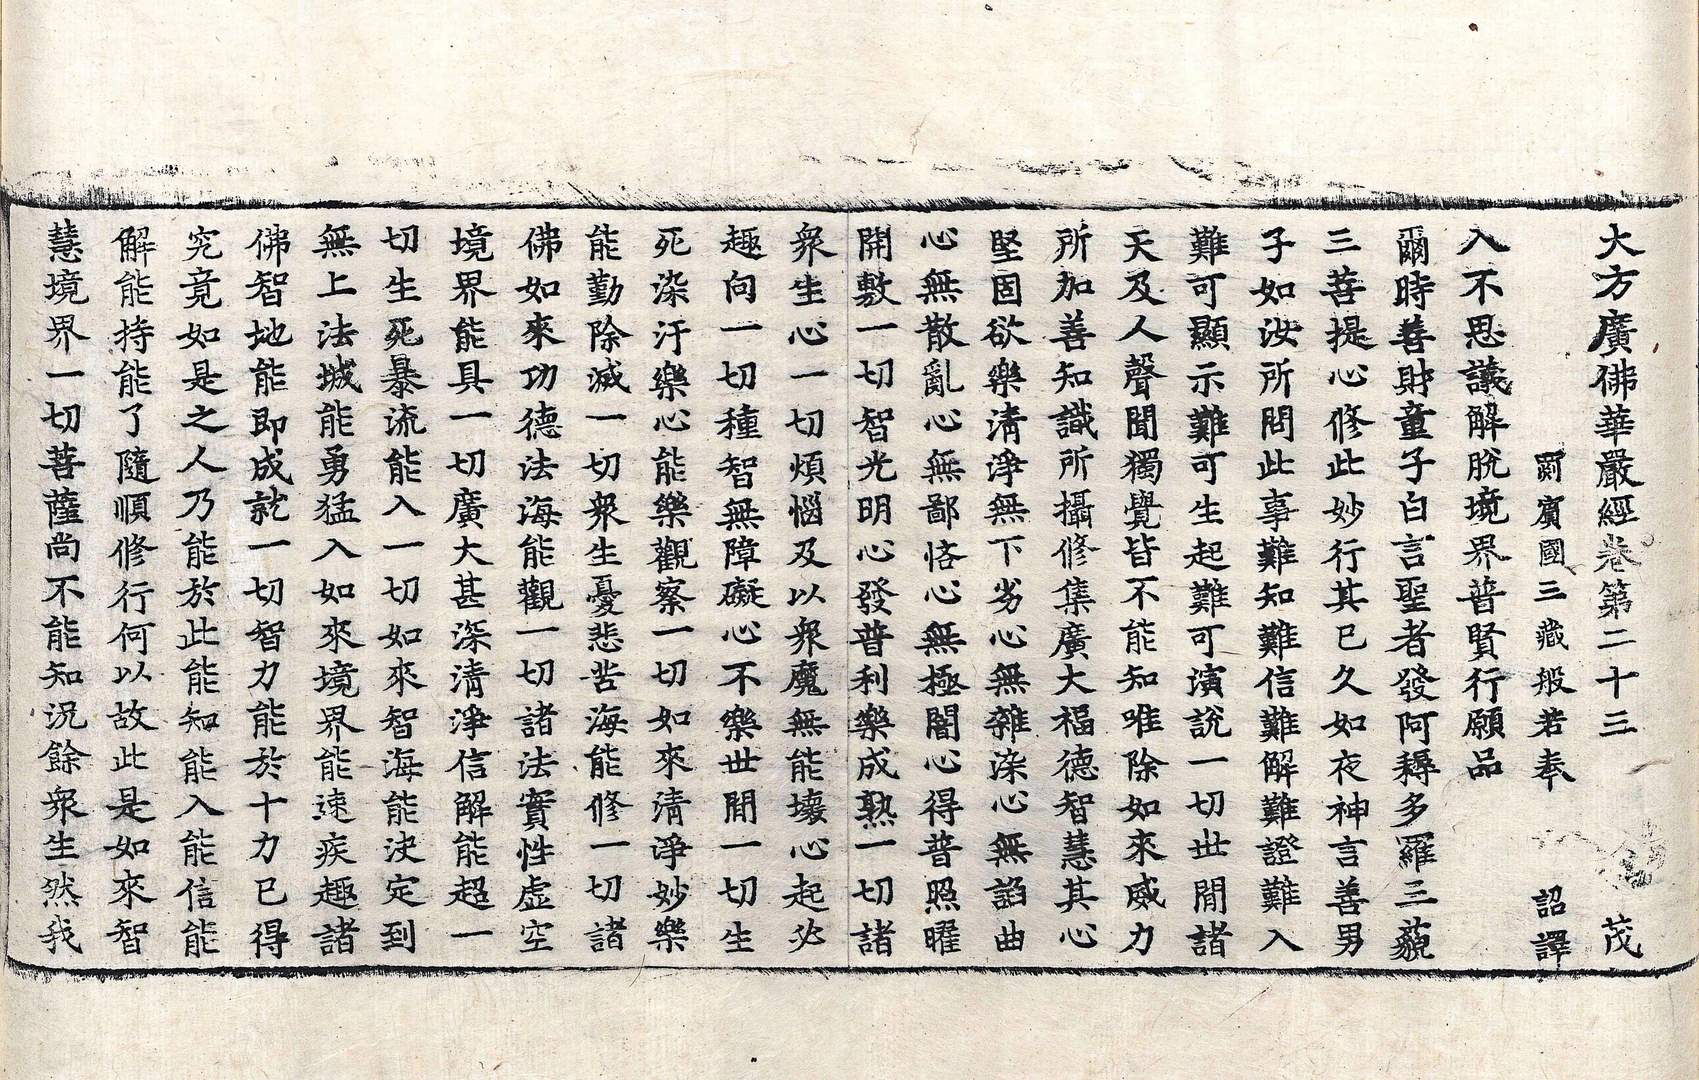 大方廣佛華嚴經卷第二十三 茂
罽賓國三藏般若奉 詔譯
入不思議解脫境界普賢行願品
爾時善財童子白言聖者發阿耨多羅三藐
三菩提心修此妙行其已久如夜神言善男
子如汝所問此事難知難信難解難證難入
難可顯示難可生起難可演說一切世間諸
天及人聲聞獨覺皆不能知唯除如來威力
所加善知識所攝修集廣大福德智慧其心
堅固欲樂清淨無下劣心無雜染心無諂曲
心無散亂心無鄙悋心無極闇心得普照曜
開敷一切智光明心發普利樂成熟一切諸
眾生心一切煩惱及以眾魔無能壞心起必
趣向一切種智無障礙心不樂世間一切生
死染汙樂心能樂觀察一切如來清淨妙樂
能勤除滅一切眾生憂悲苦海能修一切諸
佛如來功德法海能觀一切諸法實性虛空
境界能具一切廣大甚深清淨信解能超一
切生死暴流能入一切如來智海能決定到
無上法城能勇猛入如來境界能速疾趣諸
佛智地能即成就一切智力能於十力已得
究竟如是之人乃能於此能知能入能信能
解能持能了隨順修行何以故此是如來智
慧境界一切菩薩尚不能知況餘眾生然我